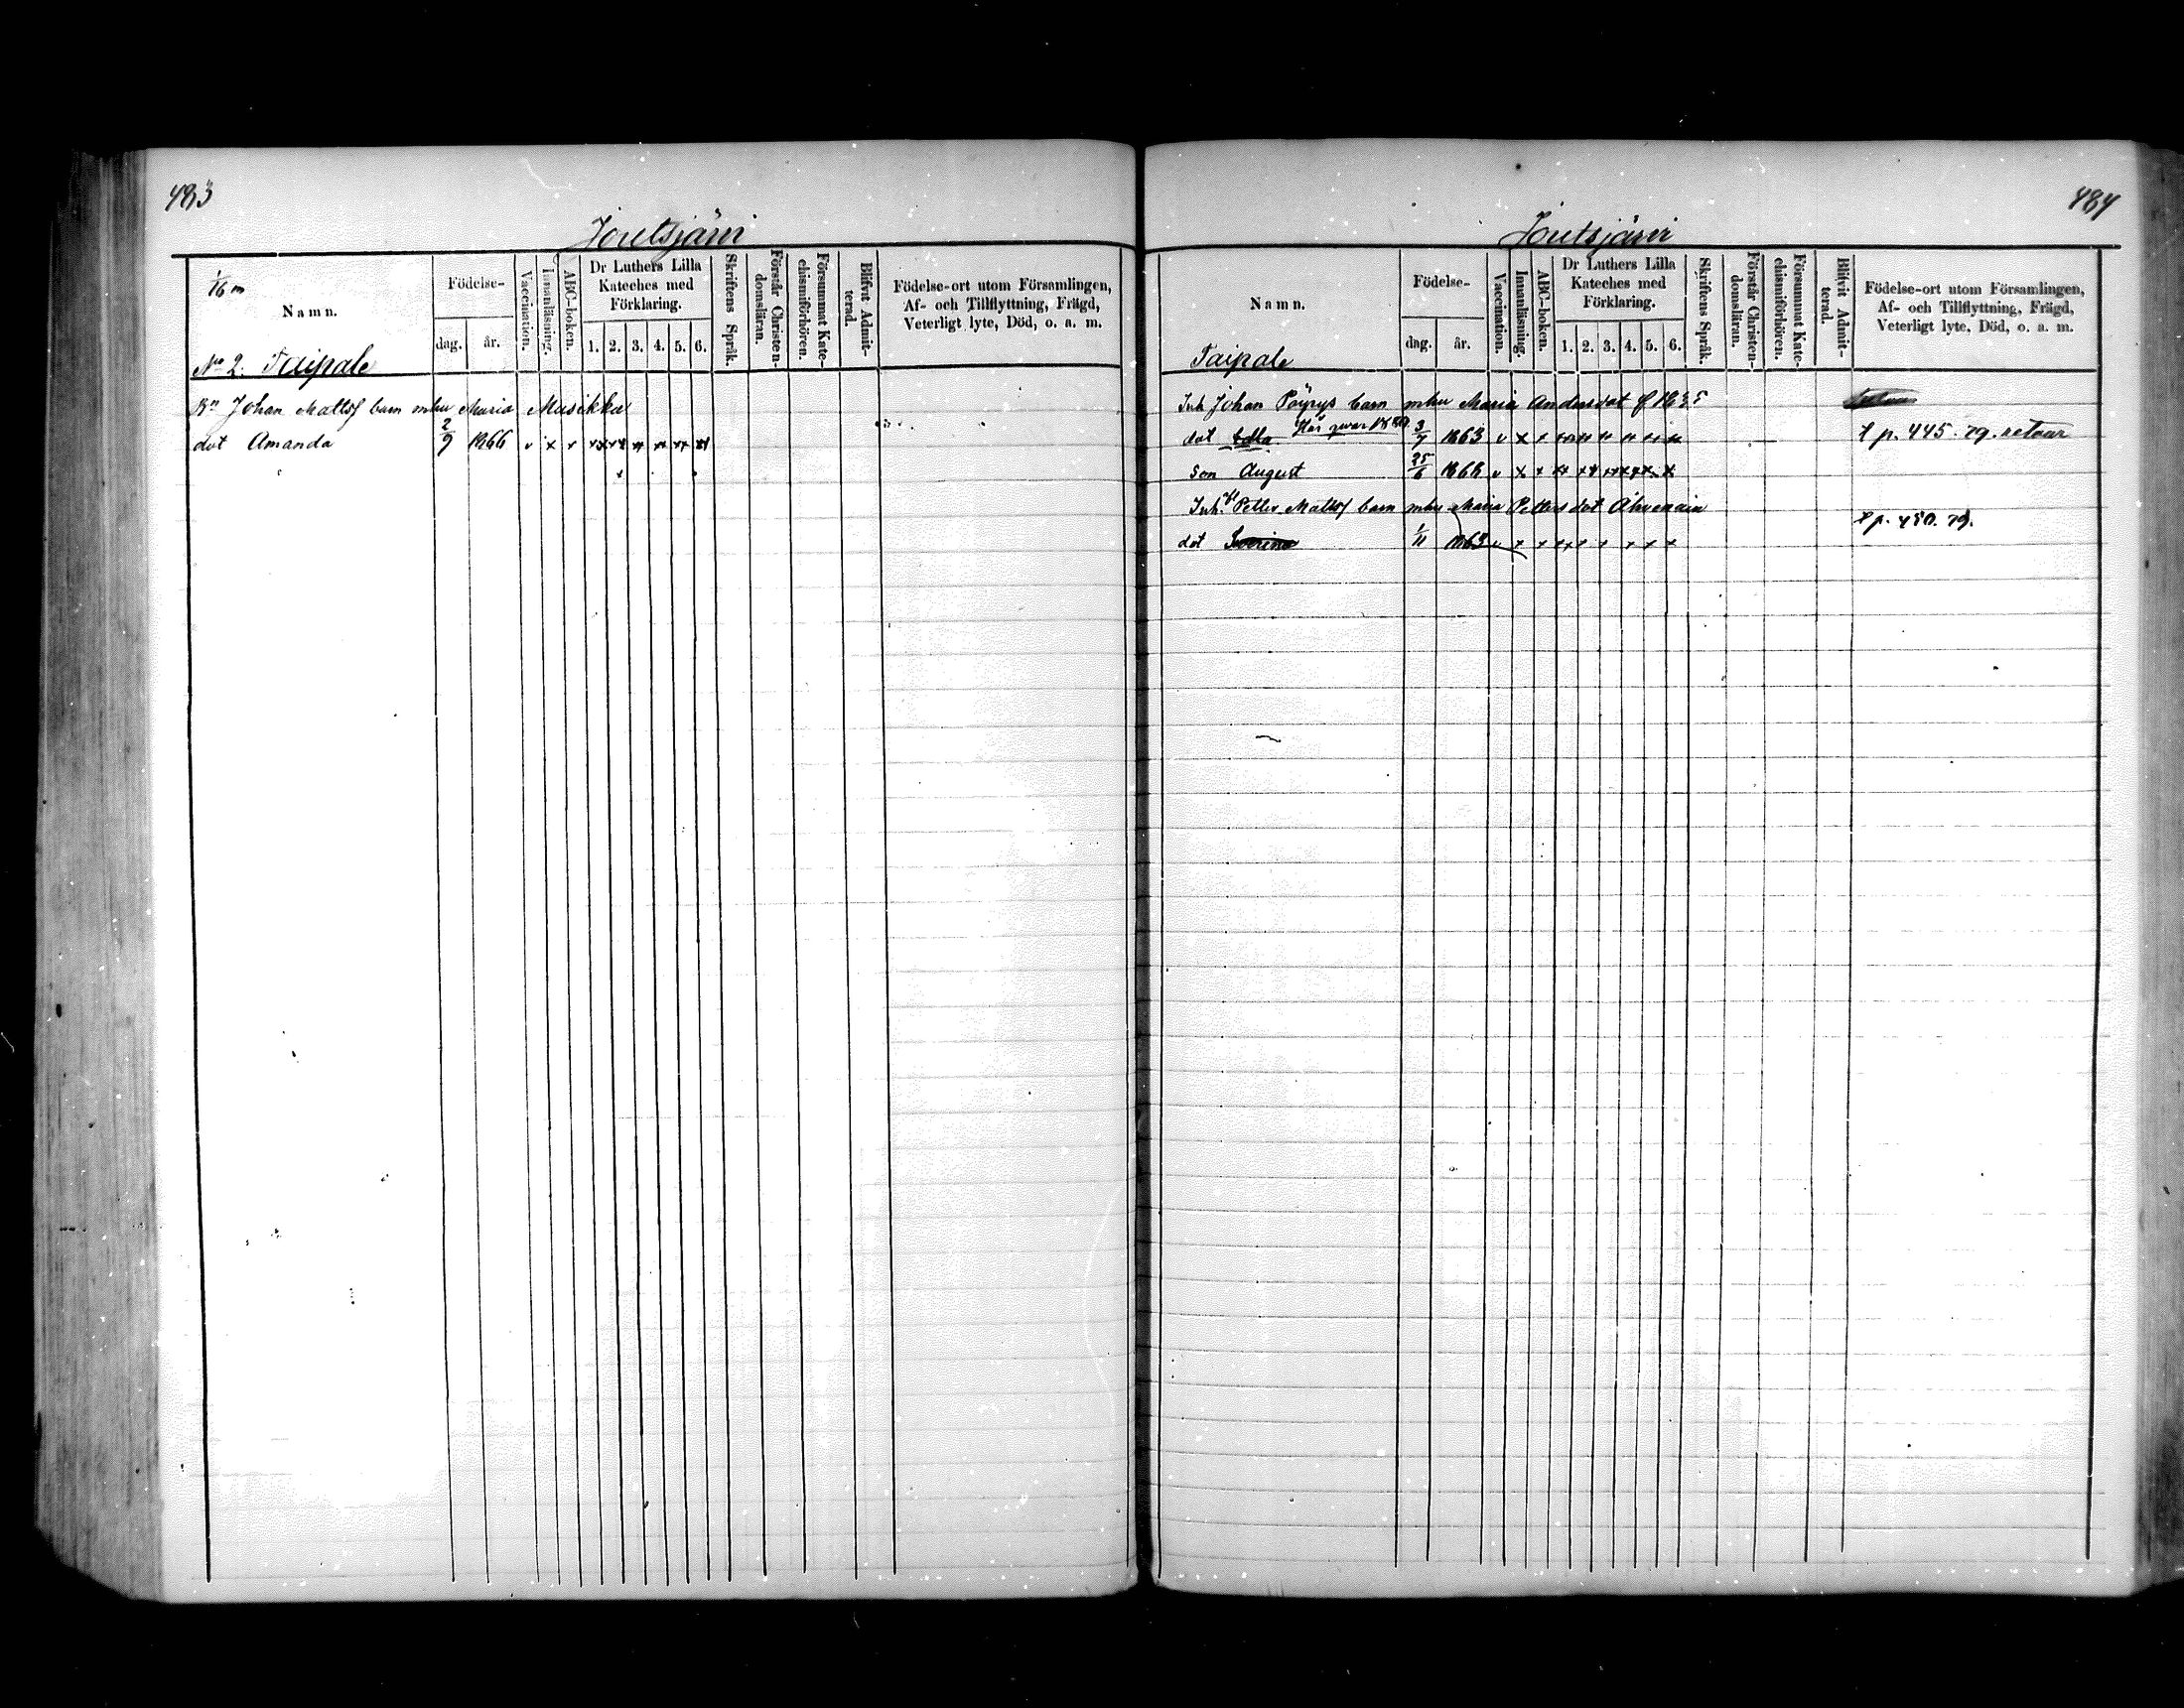 483
Joutsjärvi
1/6 m
Namn.
Födelse-
dag.
år.
Vaccination.
Innanläsning.
ABC-boken.
Dr Luthers Lilla
Kateches med
Förklaring.
1. 2. 3. 4. 5. 6.
Skriftens Språk.
Förstår Christen-
domsläran.
Försummat Kate-
chismiförhören.
Blifvit Admit-
terad.
Födelse-ort utom Församlingen,
Af- och Tillflyttning, Frägd,
Veterligt lyte, Död, o. a. m.
No 2. Taipale
Bn Johan Mattsf barn mhu Maria Masikka
dot Amanda 2/9 1866 v x + ++ ++ ++ ++ ++ ++
484
Joutsjärvi
Namn.
Födelse-
dag.
år.
Vaccination.
Innanläsning.
ABC-boken.
Dr Luthers Lilla
Kateches med
Förklaring.
1. 2. 3. 4. 5. 6.
Skriftens Språk.
Förstår Christen-
domsläran.
Försummat Kate-
chismiförhören.
Blifvit Admit-
terad.
Födelse-ort utom Församlingen,
Af- och Tillflyttning, Frägd,
Veterligt lyte, Död, o. a. m.
Taipale
Inh Johan Pöyrys barn mhu Maria Andersdot f 1835
dot Edla 3/7 1863 v x + + p. 445. 79. retour
son August 25/6 1866 v x +
Inh. Petter Mattsf barn mhu Maria Pettersdot Ahvenain
p. 450. 79.
dot Severina 1/11 1863 v + +